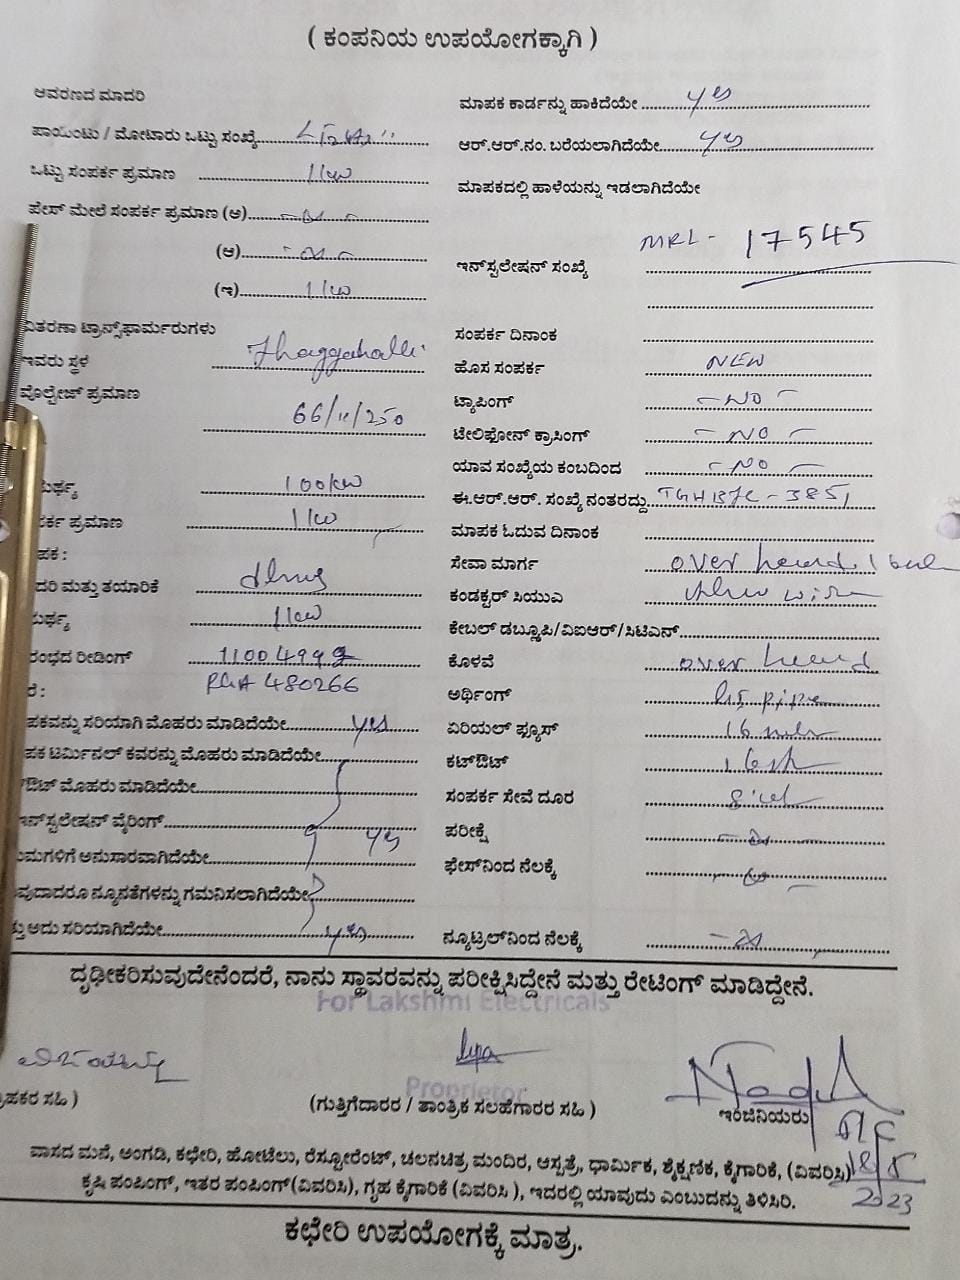 ( ಕಂಪನಿಯ ಉಪಯೋಗಕ್ಕಾಗಿ )
ಆವರಣದ ಮಾದರಿ
ಪಾಯಿಂಟು / ಮೋಟಾರು ಒಟ್ಟು ಸಂಖ್ಯೆ
ಒಟ್ಟು ಸಂಪರ್ಕ ಪ್ರಮಾಣ 1kw
ಫೇಸ್ ಮೇಲೆ ಸಂಪರ್ಕ ಪ್ರಮಾಣ (ಅ)
(ಆ)
(ಇ) 1kw
ವಿತರಣಾ ಟ್ರಾನ್ಸ್‌ಫಾರ್ಮರುಗಳು
ಇವರು ಸ್ಥಳ
ವೊಲ್ಟೇಜ್ ಪ್ರಮಾಣ
66/11/250
ರ್ಥ್ಯ 100kw
ರ್ಕ ಪ್ರಮಾಣ 1kw
ಪಕ :
ದರಿ ಮತ್ತು ತಯಾರಿಕೆ
ರ್ಥ್ಯ 1kw
ರಂಭದ ರೀಡಿಂಗ್
ರೆ : 480266
ಪಕವನ್ನು ಸರಿಯಾಗಿ ಮೊಹರು ಮಾಡಿದೆಯೇ yes
ಪಕ ಟರ್ಮಿನಲ್ ಕವರನ್ನು ಮೊಹರು ಮಾಡಿದೆಯೇ
ಔಟ್ ಮೊಹರು ಮಾಡಿದೆಯೇ
ಇನ್‌ಸ್ಟಲೇಷನ್ ವೈರಿಂಗ್
ಯಮಗಳಿಗೆ ಅನುಸಾರವಾಗಿದೆಯೇ yes
ವುದಾದರೂ ನ್ಯೂನತೆಗಳನ್ನು ಗಮನಿಸಲಾಗಿದೆಯೇ
ತ್ತು ಅದು ಸರಿಯಾಗಿದೆಯೇ yes
ಮಾಪಕ ಕಾರ್ಡನ್ನು ಹಾಕಿದೆಯೇ yes
ಆರ್.ಆರ್.ನಂ. ಬರೆಯಲಾಗಿದೆಯೇ yes
ಮಾಪಕದಲ್ಲಿ ಹಾಳೆಯನ್ನು ಇಡಲಾಗಿದೆಯೇ
MRL - 17545
ಇನ್‌ಸ್ಟಲೇಷನ್ ಸಂಖ್ಯೆ
ಸಂಪರ್ಕ ದಿನಾಂಕ
ಹೊಸ ಸಂಪರ್ಕ NEW
ಟ್ಯಾಪಿಂಗ್ - NO -
ಟೇಲಿಫೋನ್ ಕ್ರಾಸಿಂಗ್ - NO -
ಯಾವ ಸಂಖ್ಯೆಯ ಕಂಬದಿಂದ - NO -
ಈ.ಆರ್.ಆರ್. ಸಂಖ್ಯೆ ನಂತರದ್ದು
ಮಾಪಕ ಓದುವ ದಿನಾಂಕ
ಸೇವಾ ಮಾರ್ಗ over head
ಕಂಡಕ್ಟರ್ ಸಿಯುವಿ
ಕೇಬಲ್ ಡಬ್ಲ್ಯೂಪಿ/ವಿಐಆರ್/ಸಿಟಿಎಸ್
ಕೊಳವೆ over head
ಅರ್ಥಿಂಗ್ pipe
ಏರಿಯಲ್ ಫ್ಯೂಸ್
ಕಟ್‌ಔಟ್
ಸಂಪರ್ಕ ಸೇವೆ ದೂರ
ಪರೀಕ್ಷೆ
ಫೇಸ್‌ನಿಂದ ನೆಲಕ್ಕೆ
ನ್ಯೂಟ್ರಲ್‌ನಿಂದ ನೆಲಕ್ಕೆ
ದೃಢೀಕರಿಸುವುದೇನೆಂದರೆ, ನಾನು ಸ್ಥಾವರವನ್ನು ಪರೀಕ್ಷಿಸಿದ್ದೇನೆ ಮತ್ತು ರೇಟಿಂಗ್ ಮಾಡಿದ್ದೇನೆ.
For Lakshmi Electricals
Proprietor
ಹಕರ ಸಹಿ )
(ಗುತ್ತಿಗೆದಾರರ / ತಾಂತ್ರಿಕ ಸಲಹೆಗಾರರ ಸಹಿ )
ಇಂಜಿನಿಯರು
ವಾಸದ ಮನೆ, ಅಂಗಡಿ, ಕಛೇರಿ, ಹೋಟೆಲು, ರೆಸ್ಟೋರೆಂಟ್, ಚಲನಚಿತ್ರ ಮಂದಿರ, ಆಸ್ಪತ್ರೆ, ಧಾರ್ಮಿಕ, ಶೈಕ್ಷಣಿಕ, ಕೈಗಾರಿಕೆ, (ವಿವರಿಸಿ)
ಕೃಷಿ ಪಂಪಿಂಗ್, ಇತರ ಪಂಪಿಂಗ್(ವಿವರಿಸಿ), ಗೃಹ ಕೈಗಾರಿಕೆ (ವಿವರಿಸಿ ), ಇದರಲ್ಲಿ ಯಾವುದು ಎಂಬುದನ್ನು ತಿಳಿಸಿರಿ. 2023
ಕಛೇರಿ ಉಪಯೋಗಕ್ಕೆ ಮಾತ್ರ.